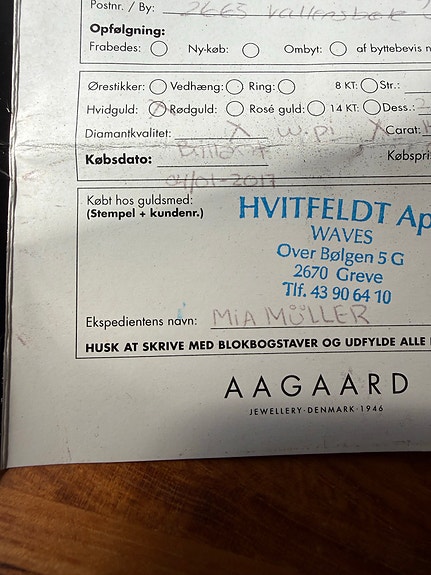 Postnr. / By: 2665 Vallensbæk
Opfølgning:
Frabedes: Ny-køb: Ombyt: af byttebevis n
Ørestikker: Vedhæng: Ring: 8 KT: Str.:
Hvidguld: X Rødguld: Rosé guld: 14 KT: Dess.: 2
Diamantkvalitet: X w.pi X Carat:
Købsdato: Købspri
04/01-2017
Købt hos guldsmed:
(Stempel + kundenr.)
HVITFELDT Ap
WAVES
Over Bølgen 5 G
2670 Greve
Tlf. 43 90 64 10
Ekspedientens navn: MIA MÜLLER
HUSK AT SKRIVE MED BLOKBOGSTAVER OG UDFYLDE ALLE
AAGAARD
JEWELLERY·DENMARK·1946